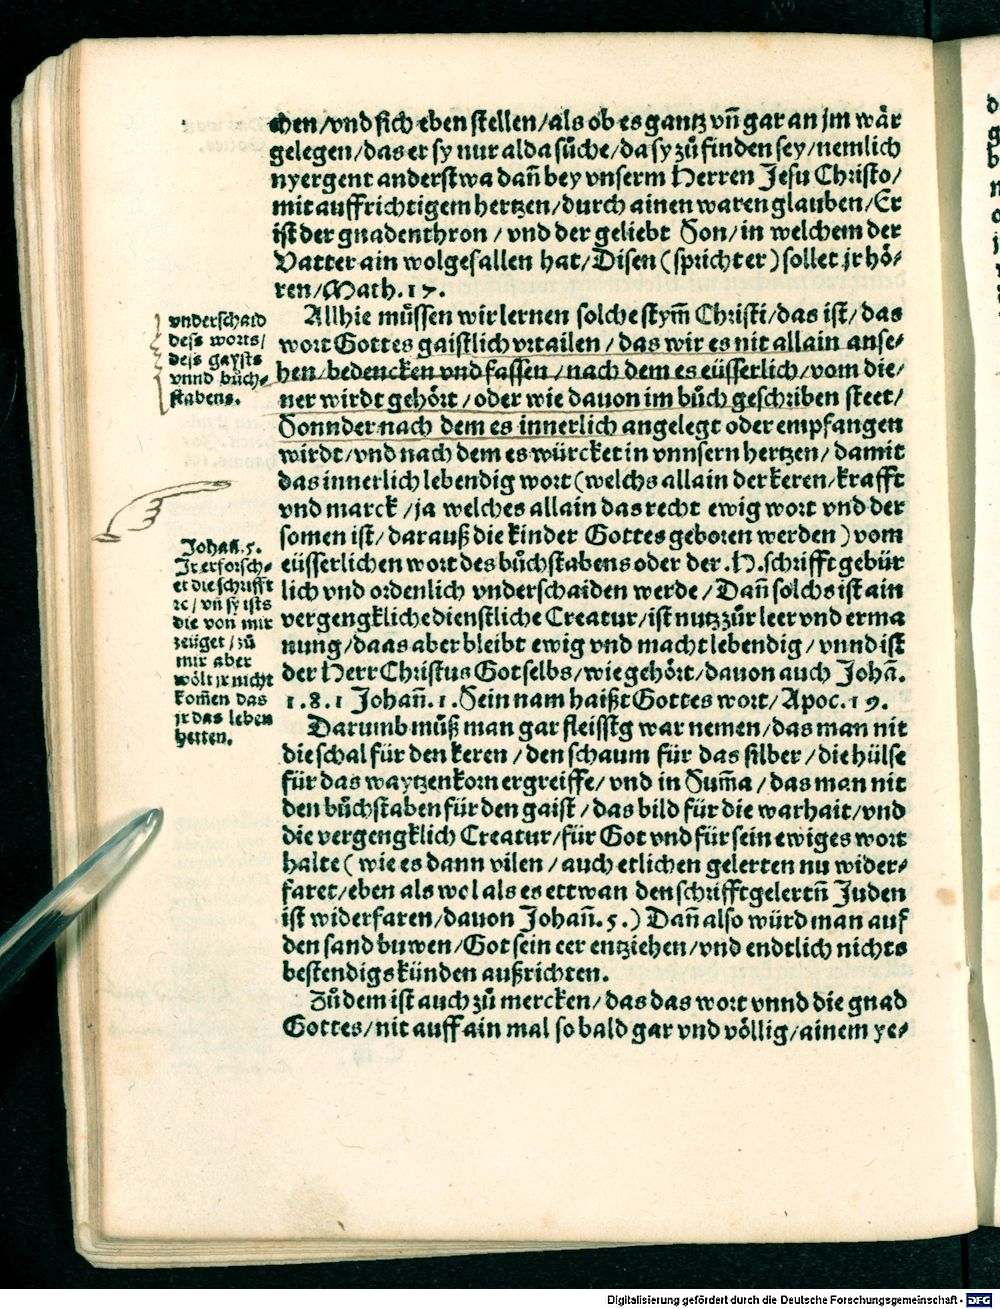 chen/vnd sich eben stellen/als ob es gantz vñ gar an jm wår
gelegen/das er sy nur alda sůche/da sy zů finden sey/nemlich
nyergent anderstwa dañ bey vnserm Herren Jesu Christo/
mit auffrichtigem hertzen/durch ainen waren glauben/Er
ist der gnadenthron/vnd der geliebt Son/in welchem der
Vatter ain wolgefallen hat/Disen (spricht er) sollet jr hö-
ren/Math.17.
Allhie müssen wir lernen solche stym̃ Christi/das ist/das
wort Gottes gaistlich vrtailen/das wir es nit allain anse-
hen/bedencken vnd fassen/nach dem es eüsserlich/vom die-
ner wirdt gehört/oder wie dauon im bůch geschriben steet/
Sonnder nach dem es innerlich angelegt oder empfangen
wirdt/vnd nach dem es würcket in vnnsern hertzen/damit
das innerlich lebendig wort (welchs allain der keren/krafft
vnd marck/ja welches allain das recht ewig wort vnd der
somen ist/darauß die kinder Gottes geboren werden) vom
eüsserlichen wort des bůchstabens oder der .H.schrifft gebür
lich vnd ordenlich vnderschaiden werde/Dañ solchs ist ain
vergengkliche dienstliche Creatur/ist nutz zůr leer vnd erma
nung/daas aber bleibt ewig vnd macht lebendig/vnnd ist
der Herr Christus Got selbs/wie gehört/dauon auch Johañ.
1.8.1 Johañ.1.Sein nam haißt Gottes wort/Apoc.19.
Darumb můß man gar fleissig war nemen/das man nit
die schal für den keren/den schaum für das silber/die hülse
für das waytzenkorn ergreiffe/vnd in Sum̃a/das man nit
den bůchstaben für den gaist/das bild für die warhait/vnd
die vergengklich Creatur/für Got vnd für sein ewiges wort
halte (wie es dann vilen/auch etlichen gelerten nu wider-
faret/eben als wol als es ettwan den schrifftgelertñ Juden
ist widerfaren/dauon Johañ.5.) Dañ also würd man auf
den sand buwen/Got sein eer entziehen/vnd endtlich nichts
bestendigs künden außrichten.
Zů dem ist auch zů mercken/das das wort vnnd die gnad
Gottes/nit auff ain mal so bald gar vnd völlig/ainem ye-
vnderschaid
dess worts/
dess gaysts
vnnd bůch-
stabens.
Johañ.5.
Ir erforsch-
et die schrifft
rc/vñ sy ists
die von mir
zeüget/zů
mir aber
wölt jr nicht
kom̃en das
jr das leben
hetten.
Digitalisierung gefördert durch die Deutsche Forschungsgemeinschaft - DFG